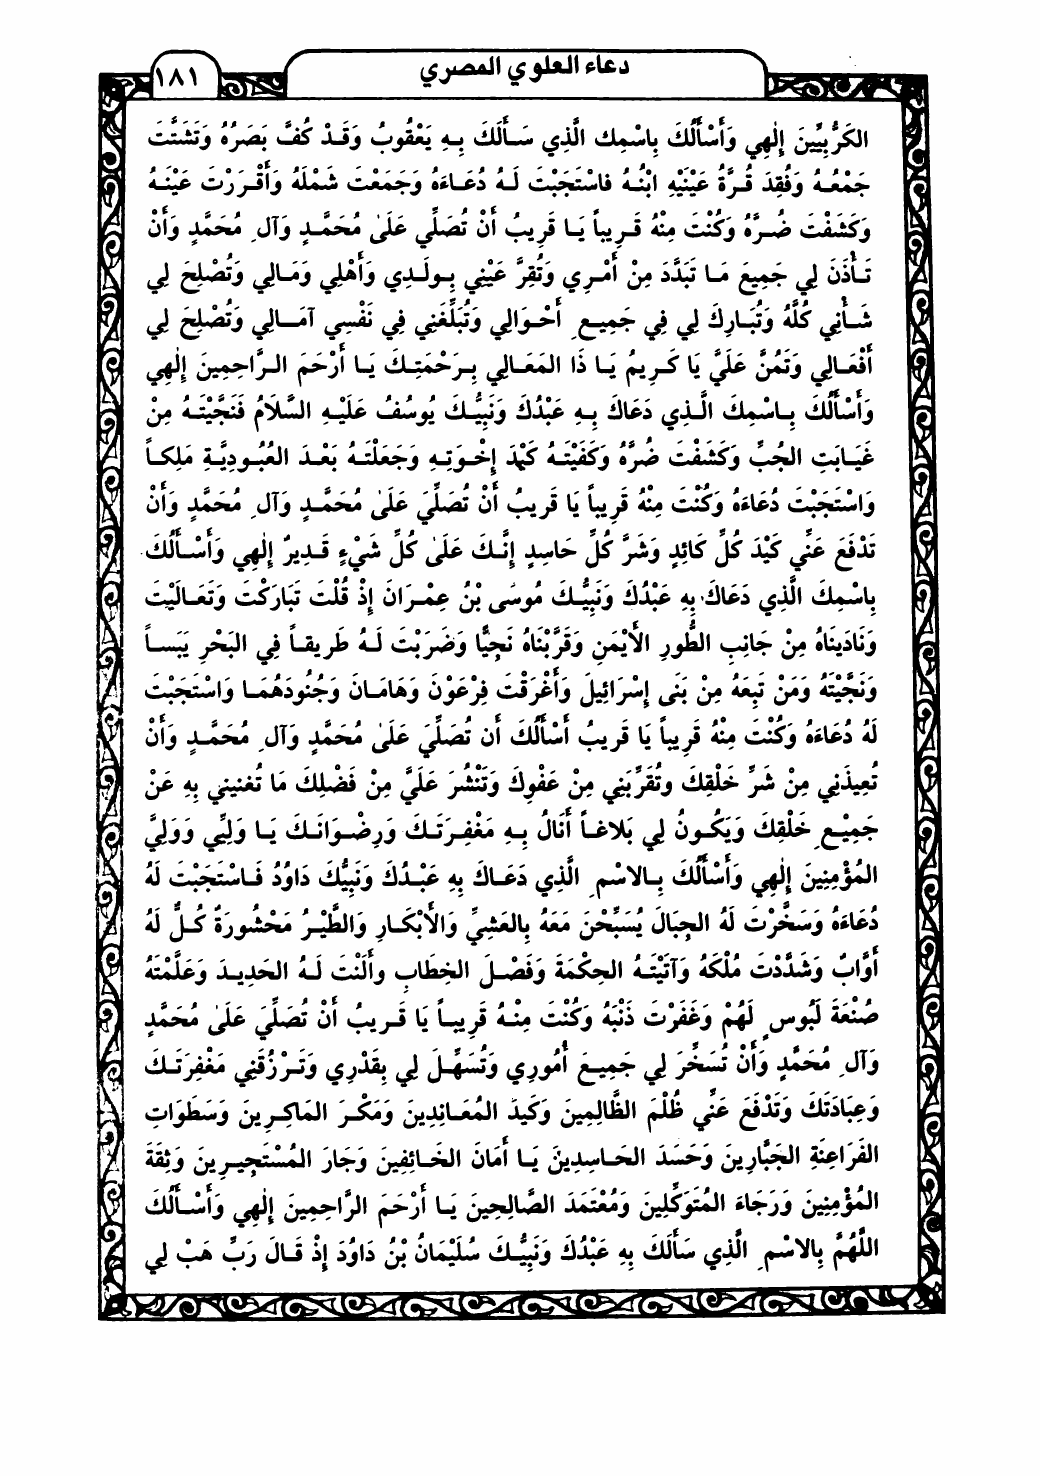 دعاء العلوي المصري
١٨١
الكَرُّبِيِّينَ إِلٰهِي وَأَسْأَلُكَ بِاسْمِك الَّذِي سَأَلَكَ بِهِ يَعْقُوبُ وَقَدْ كُفَّ بَصَرُهُ وَتَشَتَّتَ
جَمْعُهُ وَفُقِدَ قُرَّةُ عَيْنَيْهِ ابْنُهُ فاسْتَجَبْتَ لَهُ دُعَاءَهُ وَجَمَعْتَ شَمْلَهُ وَأَقْرَرْتَ عَيْنَهُ
وَكَشَفْتَ ضُرَّهُ وَكُنْتَ مِنْهُ قَرِيباً يَا قَرِيبُ أَنْ تُصَلِّي عَلَىٰ مُحَمَّدٍ وَآلِ مُحَمَّدٍ وَأَنْ
تَأْذَنَ لِي جَمِيعَ مَا تَبَدَّدَ مِنْ أَمْرِي وَتُقِرَّ عَيْنِي بِوَلَدِي وَأَهْلِي وَمَالِي وَتُصْلِحَ لِي
شَأْنِي كُلَّهُ وَتُبَارِكَ لِي فِي جَمِيعِ أَحْوَالِي وَتُبَلِّغَنِي فِي نَفْسِي آمَالِي وَتُصْلِحَ لِي
أَفْعَالِي وَتَمُنَّ عَلَيَّ يَا كَرِيمُ يَا ذَا المَعَالِي بِرَحْمَتِكَ يَا أَرْحَمَ الرَّاحِمِينَ إِلٰهِي
وَأَسْأَلُكَ بِاسْمِكَ الَّذِي دَعَاكَ بِهِ عَبْدُكَ وَنَبِيُّكَ يُوسُفُ عَلَيْهِ السَّلَامُ فَنَجَّيْتَهُ مِنْ
غَيَابَتِ الجُبِّ وَكَشَفْتَ ضُرَّهُ وَكَفَيْتَهُ كَيْدَ إِخْوَتِهِ وَجَعَلْتَهُ بَعْدَ العُبُودِيَّةِ مَلِكاً
وَاسْتَجَبْتَ دُعَاءَهُ وَكُنْتَ مِنْهُ قَرِيباً يَا قَرِيبُ أَنْ تُصَلِّيَ عَلَىٰ مُحَمَّدٍ وَآلِ مُحَمَّدٍ وَأَنْ
تَدْفَعَ عَنِّي كَيْدَ كُلِّ كَائِدٍ وَشَرَّ كُلِّ حَاسِدٍ إِنَّكَ عَلَىٰ كُلِّ شَيْءٍ قَدِيرٌ إِلٰهِي وَأَسْأَلُكَ
بِاسْمِكَ الَّذِي دَعَاكَ بِهِ عَبْدُكَ وَنَبِيُّكَ مُوسَى بْنُ عِمْرَانَ إِذْ قُلْتَ تَبَارَكْتَ وَتَعَالَيْتَ
وَنَادَيْنَاهُ مِنْ جَانِبِ الطُّورِ الأَيْمَنِ وَقَرَّبْنَاهُ نَجِيًّا وَضَرَبْتَ لَهُ طَرِيقاً فِي البَحْرِ يَبَساً
وَنَجَّيْتَهُ وَمَنْ تَبِعَهُ مِنْ بَنَى إِسْرَائِيلَ وَأَغْرَقْتَ فِرْعَوْنَ وَهَامَانَ وَجُنُودَهُمَا وَاسْتَجَبْتَ
لَهُ دُعَاءَهُ وَكُنْتَ مِنْهُ قَرِيباً يَا قَرِيبُ أَسْأَلُكَ أَن تُصَلِّيَ عَلَىٰ مُحَمَّدٍ وَآلِ مُحَمَّدٍ وَأَنْ
تُعِيذَنِي مِنْ شَرِّ خَلْقِكَ وتُقَرِّبَنِي مِنْ عَفْوِكَ وَتَنْشُرَ عَلَيَّ مِنْ فَضْلِكَ مَا تُغنِينِي بِهِ عَنْ
جَمِيْعِ خَلْقِكَ وَيَكُونُ لِي بَلاغاً أَنَالُ بِهِ مَغْفِرَتَكَ وَرِضْوَانَكَ يَا وَلِيِّي وَوَلِيَّ
المُؤْمِنِينَ إِلٰهِي وَأَسْأَلُكَ بِالاسْمِ الَّذِي دَعَاكَ بِهِ عَبْدُكَ وَنَبِيُّكَ دَاوُدُ فَاسْتَجَبْتَ لَهُ
دُعَاءَهُ وَسَخَّرْتَ لَهُ الجِبَالَ يُسَبِّحْنَ مَعَهُ بِالعَشِيِّ وَالأَبْكَارِ وَالطَّيْرُ مَحْشُورَةً كُلٌّ لَهُ
أَوَّابٌ وَشَدَّدْتَ مُلْكَهُ وَآتَيْتَهُ الحِكْمَةَ وَفَصْلَ الخِطَابِ وأَلَنْتَ لَهُ الحَدِيدَ وَعَلَّمْتَهُ
صُنْعَةَ لَبُوسٍ لَهُمْ وَغَفَرْتَ ذَنْبَهُ وَكُنْتَ مِنْهُ قَرِيباً يَا قَرِيبُ أَنْ تُصَلِّيَ عَلَىٰ مُحَمَّدٍ
وَآلِ مُحَمَّدٍ وَأَنْ تُسَخِّرَ لِي جَمِيعَ أُمُورِي وَتُسَهِّلَ لِي بِقَدْرِي وَتَرْزُقَنِي مَغْفِرَتَكَ
وَعِبَادَتَكَ وَتَدْفَعَ عَنِّي ظُلْمَ الظَّالِمِينَ وَكَيدَ المُعَانِدِينَ وَمَكْرَ المَاكِرِينَ وَسَطَوَاتِ
الفَرَاعِنَةِ الجَبَّارِينَ وَحَسَدَ الحَاسِدِينَ يَا أَمَانَ الخَائِفِينَ وَجَارَ المُسْتَجِيرِينَ وَثِقَةَ
المُؤْمِنِينَ وَرَجَاءَ المُتَوَكِّلِينَ وَمُعْتَمَدَ الصَّالِحِينَ يَا أَرْحَمَ الرَّاحِمِينَ إِلٰهِي وَأَسْأَلُكَ
اللَّهُمَّ بِالاسْمِ الَّذِي سَأَلَكَ بِهِ عَبْدُكَ وَنَبِيُّكَ سُلَيْمَانُ بْنُ دَاوُدَ إِذْ قَالَ رَبِّ هَبْ لِي